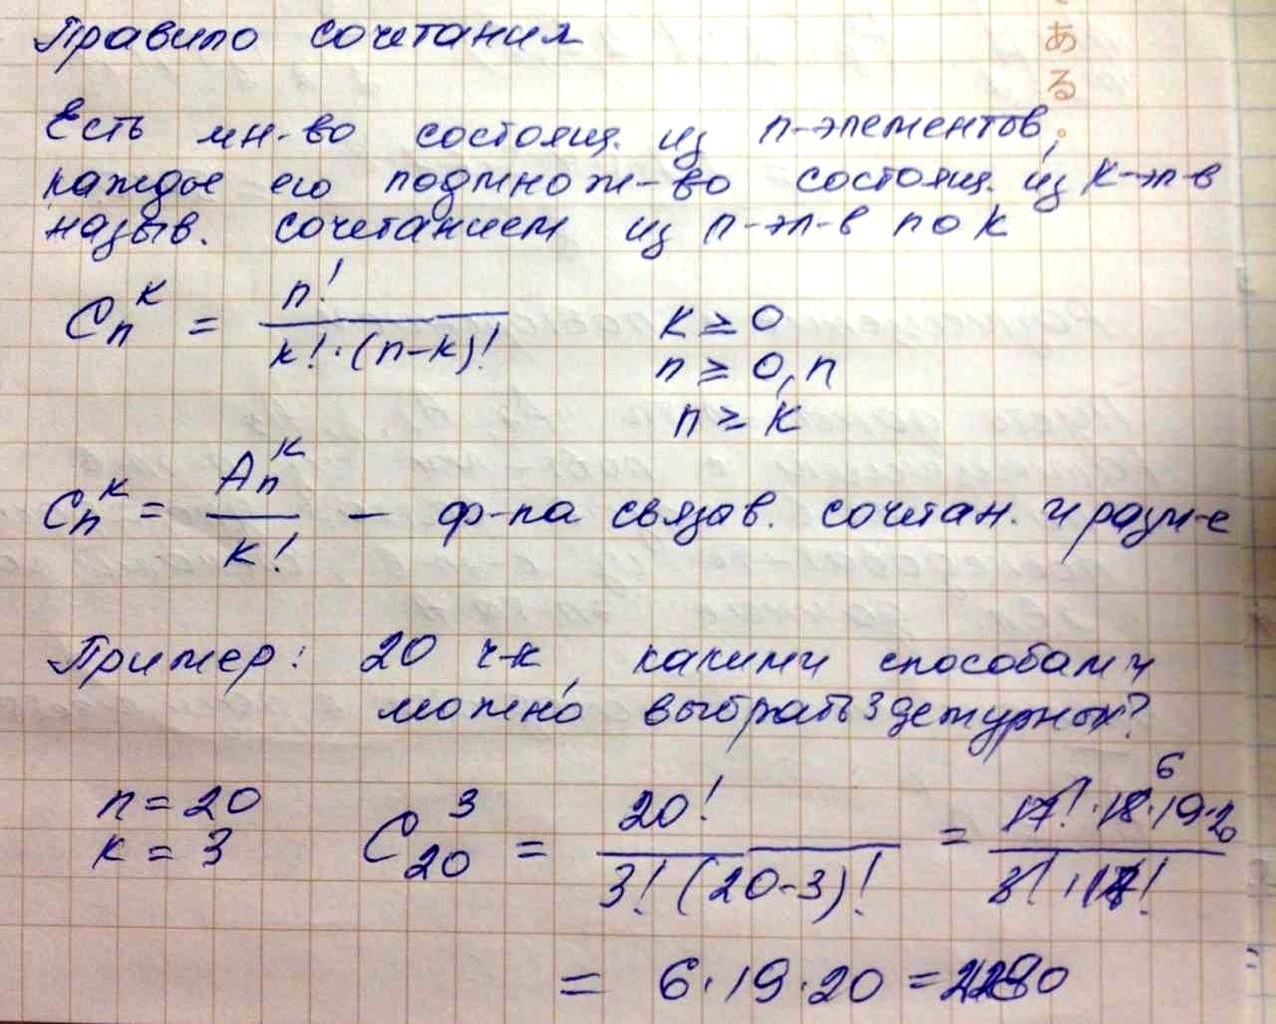 Правило сочетания
ある
Есть мн-во состоящ. из n-элементов,
каждое его подмнож-во состоящ. из k-эл-в
назыв. сочетанием из n-эл-в по k
C_n^k = n! / k!·(n-k)!
k ≥ 0
n ≥ 0, n
n ≥ k
C_n^k = A_n^k / k! — ф-ла связыв. сочетан. и разм-е
Пример: 20 ч-к, какими способами
можно выбрать 3 дежурных?
n = 20
k = 3
C_20^3 = 20! / 3!(20-3)! = 17!·18·19·20 / 3!·17!
6
= 6·19·20 =